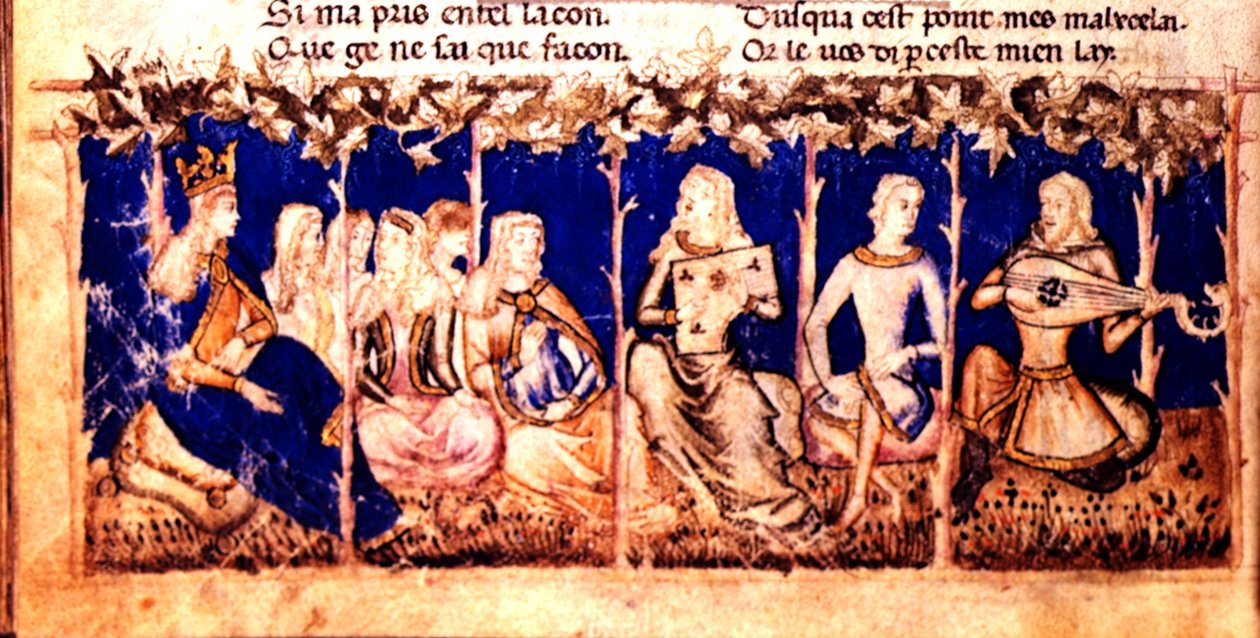 Si ma pris entel lacon.
Que ge ne sai que facon.
Dusqua cest point mes malx celai.
Or le uos di ꝑ ceste mien lay.